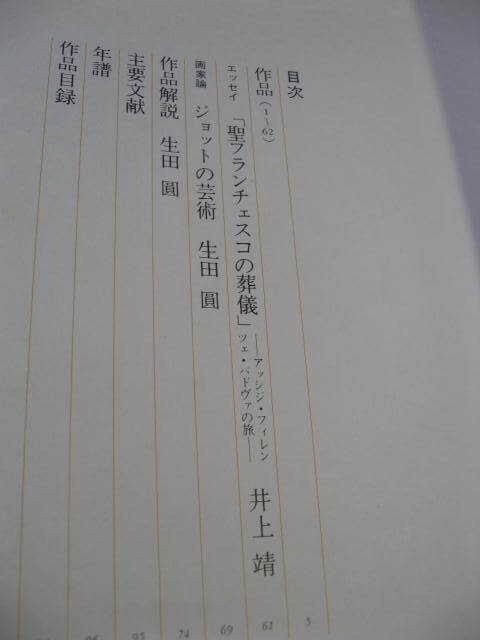 目次
作品（1〜62） 5
エッセイ 「聖フランチェスコの葬儀」 ──アッシジ・フィレンツェ・パドヴァの旅── 井上 靖 61
画家論 ジョットの芸術 生田 圓 69
作品解説 生田 圓 74
主要文献 95
年譜 96
作品目録